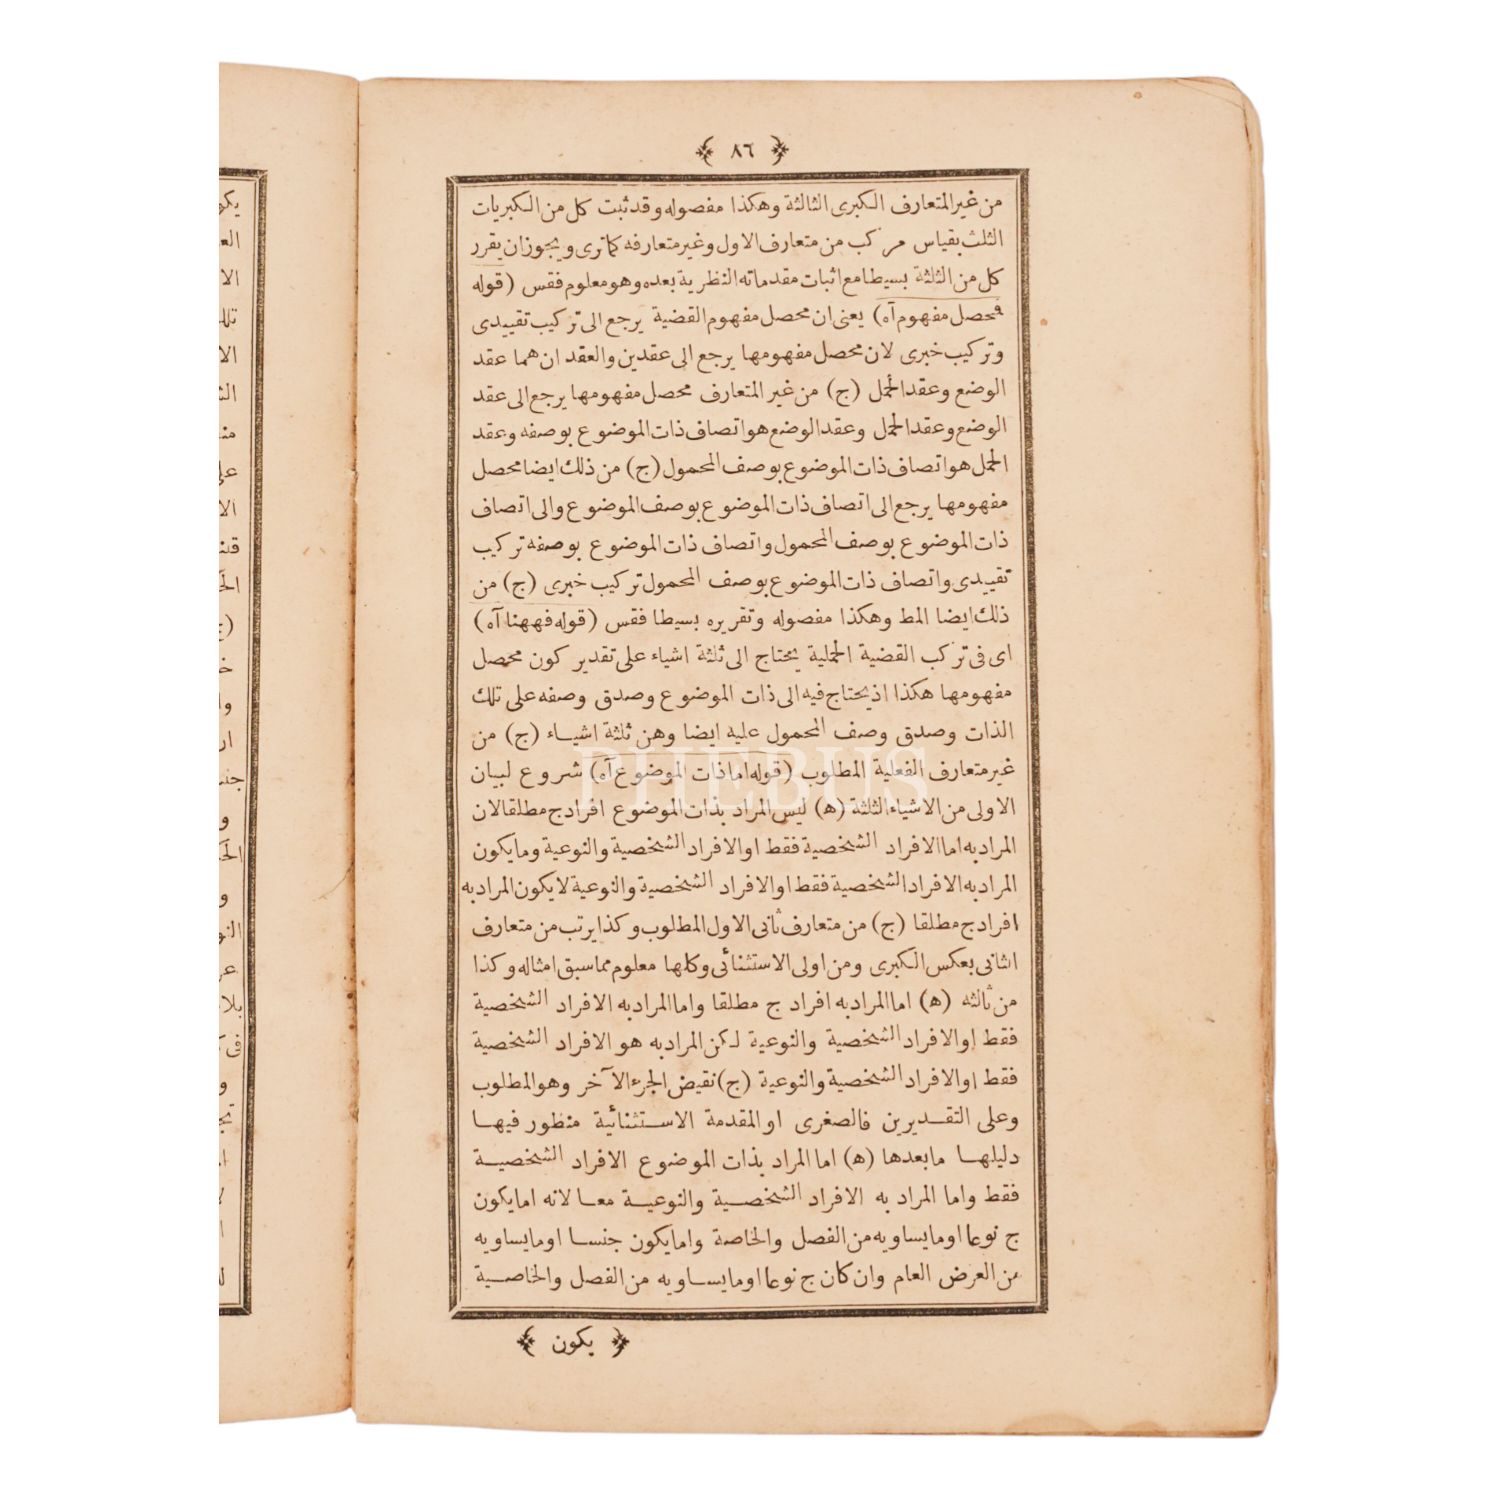 ٨٦
من غير المتعارف الكبرى الثالثة وهكذا مفصوله وقد ثبت كل من الكبريات
الثلث بقياس مركب من متعارف الاول وغير متعارفه كماترى ويجوزان يقرر
كل من الثلثة بسيطا مع اثبات مقدماته النظرية بعده وهو معلوم فقس (قوله
فمحصل مفهوم آه) يعنى ان محصل مفهوم القضية يرجع الى تركيب تقييدى
وتركيب خبرى لان محصل مفهومها يرجع الى عقدين والعقد ان هما عقد
الوضع وعقد الحمل (ج) من غير المتعارف محصل مفهومها يرجع الى عقد
الوضع وعقد الحمل وعقد الوضع هو اتصاف ذات الموضوع بوصفه وعقد
الحمل هو اتصاف ذات الموضوع بوصف المحمول (ج) من ذلك ايضا محصل
مفهومها يرجع الى اتصاف ذات الموضوع بوصف الموضوع والى اتصاف
ذات الموضوع بوصف المحمول واتصاف ذات الموضوع بوصفه تركيب
تقييدى واتصاف ذات الموضوع بوصف المحمول تركيب خبرى (ج) من
ذلك ايضا المط وهكذا مفصوله وتقريره بسيطا فقس (قوله فههنا آه)
اى فى تركب القضية الحملية يحتاج الى ثلثة اشياء على تقدير كون محصل
مفهومها هكذا اذ يحتاج فيه الى ذات الموضوع وصدق وصفه على تلك
الذات وصدق وصف المحمول عليه ايضا وهن ثلثة اشياء (ج) من
غير متعارف الفعلية المطلوب (قوله اما ذات الموضوع آه) شروع لبيان
الاولى من الاشياء الثلثة (ه) ليس المراد بذات الموضوع افراد ج مطلقا لان
المراد به اما الافراد الشخصية فقط او الافراد الشخصية والنوعية وما يكون
المراد به الافراد الشخصية فقط او الافراد الشخصية والنوعية لا يكون المراد به
افراد ج مطلقا (ج) من متعارف ثانى الاول المطلوب وكذا يرتب من متعارف
الثانى بعكس الكبرى ومن اولى الاستثنائى وكلها معلوم مما سبق امثاله وكذا
من ثالثه (ه) اما المراد به افراد ج مطلقا واما المراد به الافراد الشخصية
فقط او الافراد الشخصية والنوعية لكن المراد به هو الافراد الشخصية
فقط او الافراد الشخصية والنوعية (ج) نقيض الجزء الآخر وهو المطلوب
وعلى التقديرين فالصغرى او المقدمة الاستثنائية منظور فيها
دليلها ما بعدها (ه) اما المراد بذات الموضوع الافراد الشخصية
فقط واما المراد به الافراد الشخصية والنوعية معا لانه اما يكون
ج نوعا او ما يساويه من الفصل والخاصة واما يكون جنسا او ما يساويه
من العرض العام وان كان ج نوعا او ما يساويه من الفصل والخاصية
يكون
PHEBUS